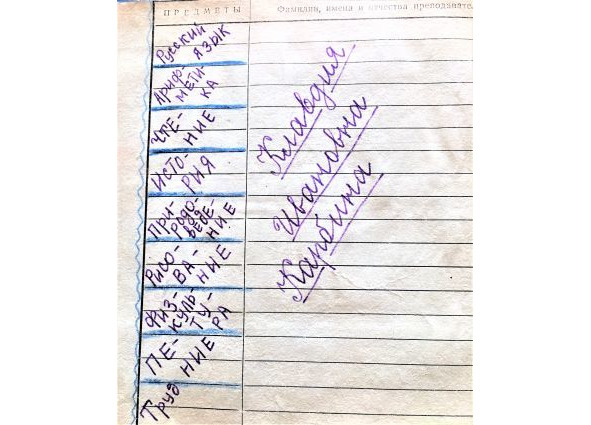 ПРЕДМЕТЫ
Фамилии, имена и отчества преподавате
Русский
язык
Ариф-
мети-
ка
Чте-
ние
Исто-
рия
При-
родо-
веде-
ние
Рисо-
ва-
ние
Физ-
куль-
ту-
ра
Пе-
ние
Труд
Клавдия
Ивановна
Карбина